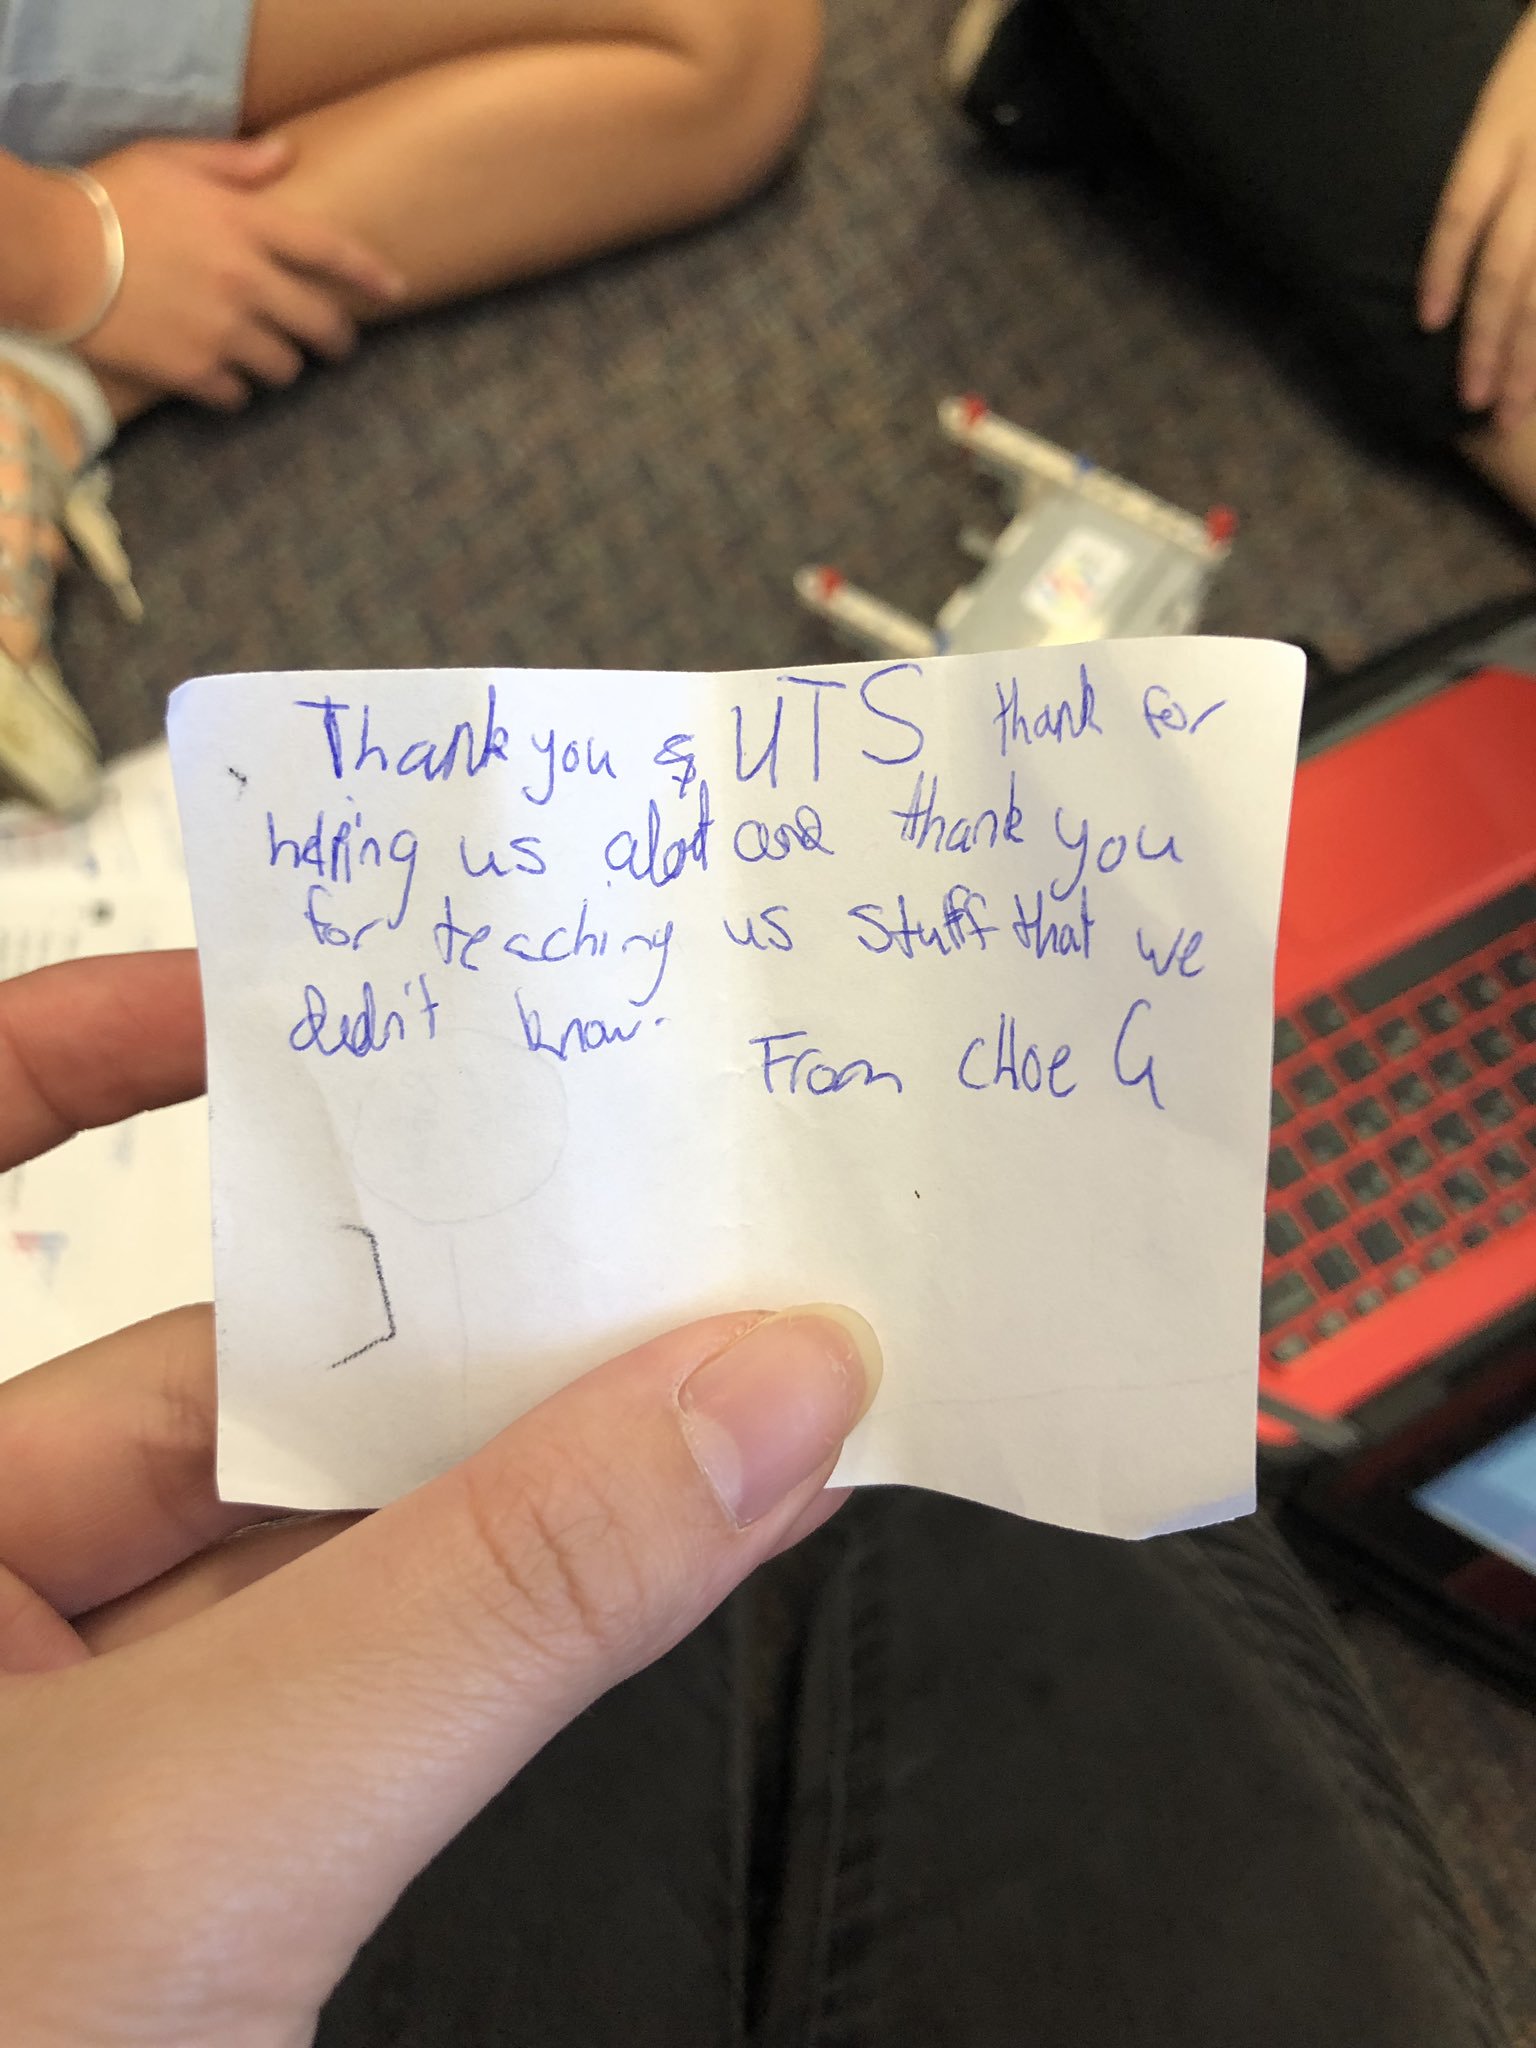 Thank you UTS thank for
helping us alot and thank you
for teaching us stuff that we
didn't know.
From CHloe G